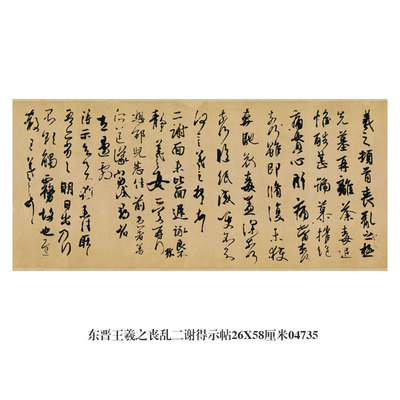 羲之頓首喪亂之極
先墓再離荼毒追
惟酷甚號慕摧絕
痛貫心肝痛當奈何
奈何雖即脩復未獲
奔馳哀毒益深奈何
奈何臨紙感哽不知
何言羲之頓首頓首
二謝面未比面遲詠良不
靜羲之女愛再拜
想邵兒悉佳前患者善
所送議當試尋省
左邊劇
得示知足下猶未佳耿耿
吾亦劣劣明日出乃行
不欲觸霧故也遲
散王羲之頓首
东晋王羲之丧乱二谢得示帖26X58厘米04735